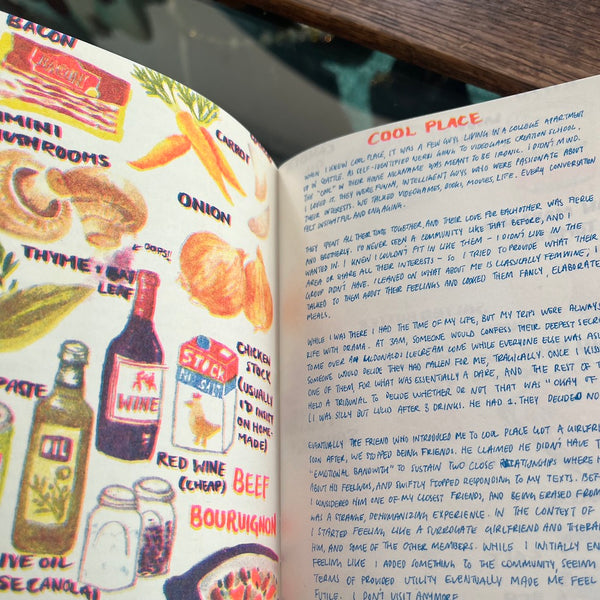 BACON
BACON
CARROT
MUSHROOMS
ONION
← OOPS!!
THYME + BAY
LEAF
STOCK
NO SALT
WINE
CHICKEN
STOCK
(USUALLY
I'D INSIST
ON HOME-
MADE)
PASTE
OIL
RED WINE
(CHEAP)
BEEF
BOURUIGNON
OLIVE OIL
COOL PLACE
WHEN I KNEW COOL PLACE, IT WAS A FEW GUYS LIVING IN A COLLEGE APARTMENT
UP IN SEATTLE. AS SELF-IDENTIFIED NERDS GOING TO VIDEOGAME CREATION SCHOOL,
THE "COOL" IN THEIR HOUSE NICKNAME WAS MEANT TO BE IRONIC. I DIDN'T MIND.
I LOVED IT. THEY WERE FUNNY, INTELLIGENT GUYS WHO WERE PASSIONATE ABOUT
THEIR INTERESTS. WE TALKED VIDEOGAMES, BOOKS, MOVIES, LIFE. EVERY CONVERSATION
FELT INSIGHTFUL AND ENGAGING.
THEY SPENT ALL THEIR TIME TOGETHER, AND THEIR LOVE FOR EACHOTHER WAS FIERCE
AND BROTHERLY. I'D NEVER SEEN A COMMUNITY LIKE THAT BEFORE, AND I
WANTED IN. I KNEW I COULDN'T FIT IN LIKE THEM – I DIDN'T LIVE IN THE
AREA OR SHARE ALL THEIR INTERESTS – SO I TRIED TO PROVIDE WHAT THEIR
GROUP DIDN'T HAVE. I LEANED ON WHAT ABOUT ME IS CLASSICALLY FEMININE, I
TALKED TO THEM ABOUT THEIR FEELINGS AND COOKED THEM FANCY, ELABORATE
MEALS.
WHILE I WAS THERE I HAD THE TIME OF MY LIFE, BUT MY TRIPS WERE ALWAYS
WITH DRAMA. AT 3AM, SOMEONE WOULD CONFESS THEIR DEEPEST
TIME OVER AN MCDONALDS ICECREAM CONE WHILE EVERYONE ELSE WAS
SOMEONE WOULD DECIDE THEY HAD FALLEN FOR ME, TRAGICALLY. ONCE I
ONE OF THEM, FOR WHAT WAS ESSENTIALLY A DARE, AND THE REST OF
HELD A TRIBUNAL TO DECIDE WHETHER OR NOT THAT WAS "OKAY OF
(I WAS SILLY BUT LUCID AFTER 3 DRINKS. HE HAD 1. THEY DECIDED NO
EVENTUALLY THE FRIEND WHO INTRODUCED ME TO COOL PLACE GOT A
SOON AFTER, WE STOPPED BEING FRIENDS. HE CLAIMED HE DIDN'T HAVE
"EMOTIONAL BANDWITH" TO SUSTAIN TWO CLOSE RELATIONSHIPS WHERE
ABOUT HIS FEELINGS, AND SWIFTLY STOPPED RESPONDING TO MY TEXTS.
I CONSIDERED HIM ONE OF MY CLOSEST FRIENDS, AND BEING ERASED FROM
WAS A STRANGE, DEHUMANIZING EXPERIENCE. IN THE CONTEXT OF
I STARTED FEELING LIKE A SURROGATE GIRLFRIEND AND
HIM, AND SOME OF THE OTHER MEMBERS. WHILE I INITIALLY
FEELING LIKE I ADDED SOMETHING TO THE COMMUNITY, SEEING
TERMS OF PROVIDED UTILITY EVENTUALLY MADE ME FEEL
FUTILE. I DON'T VISIT ANYMORE.